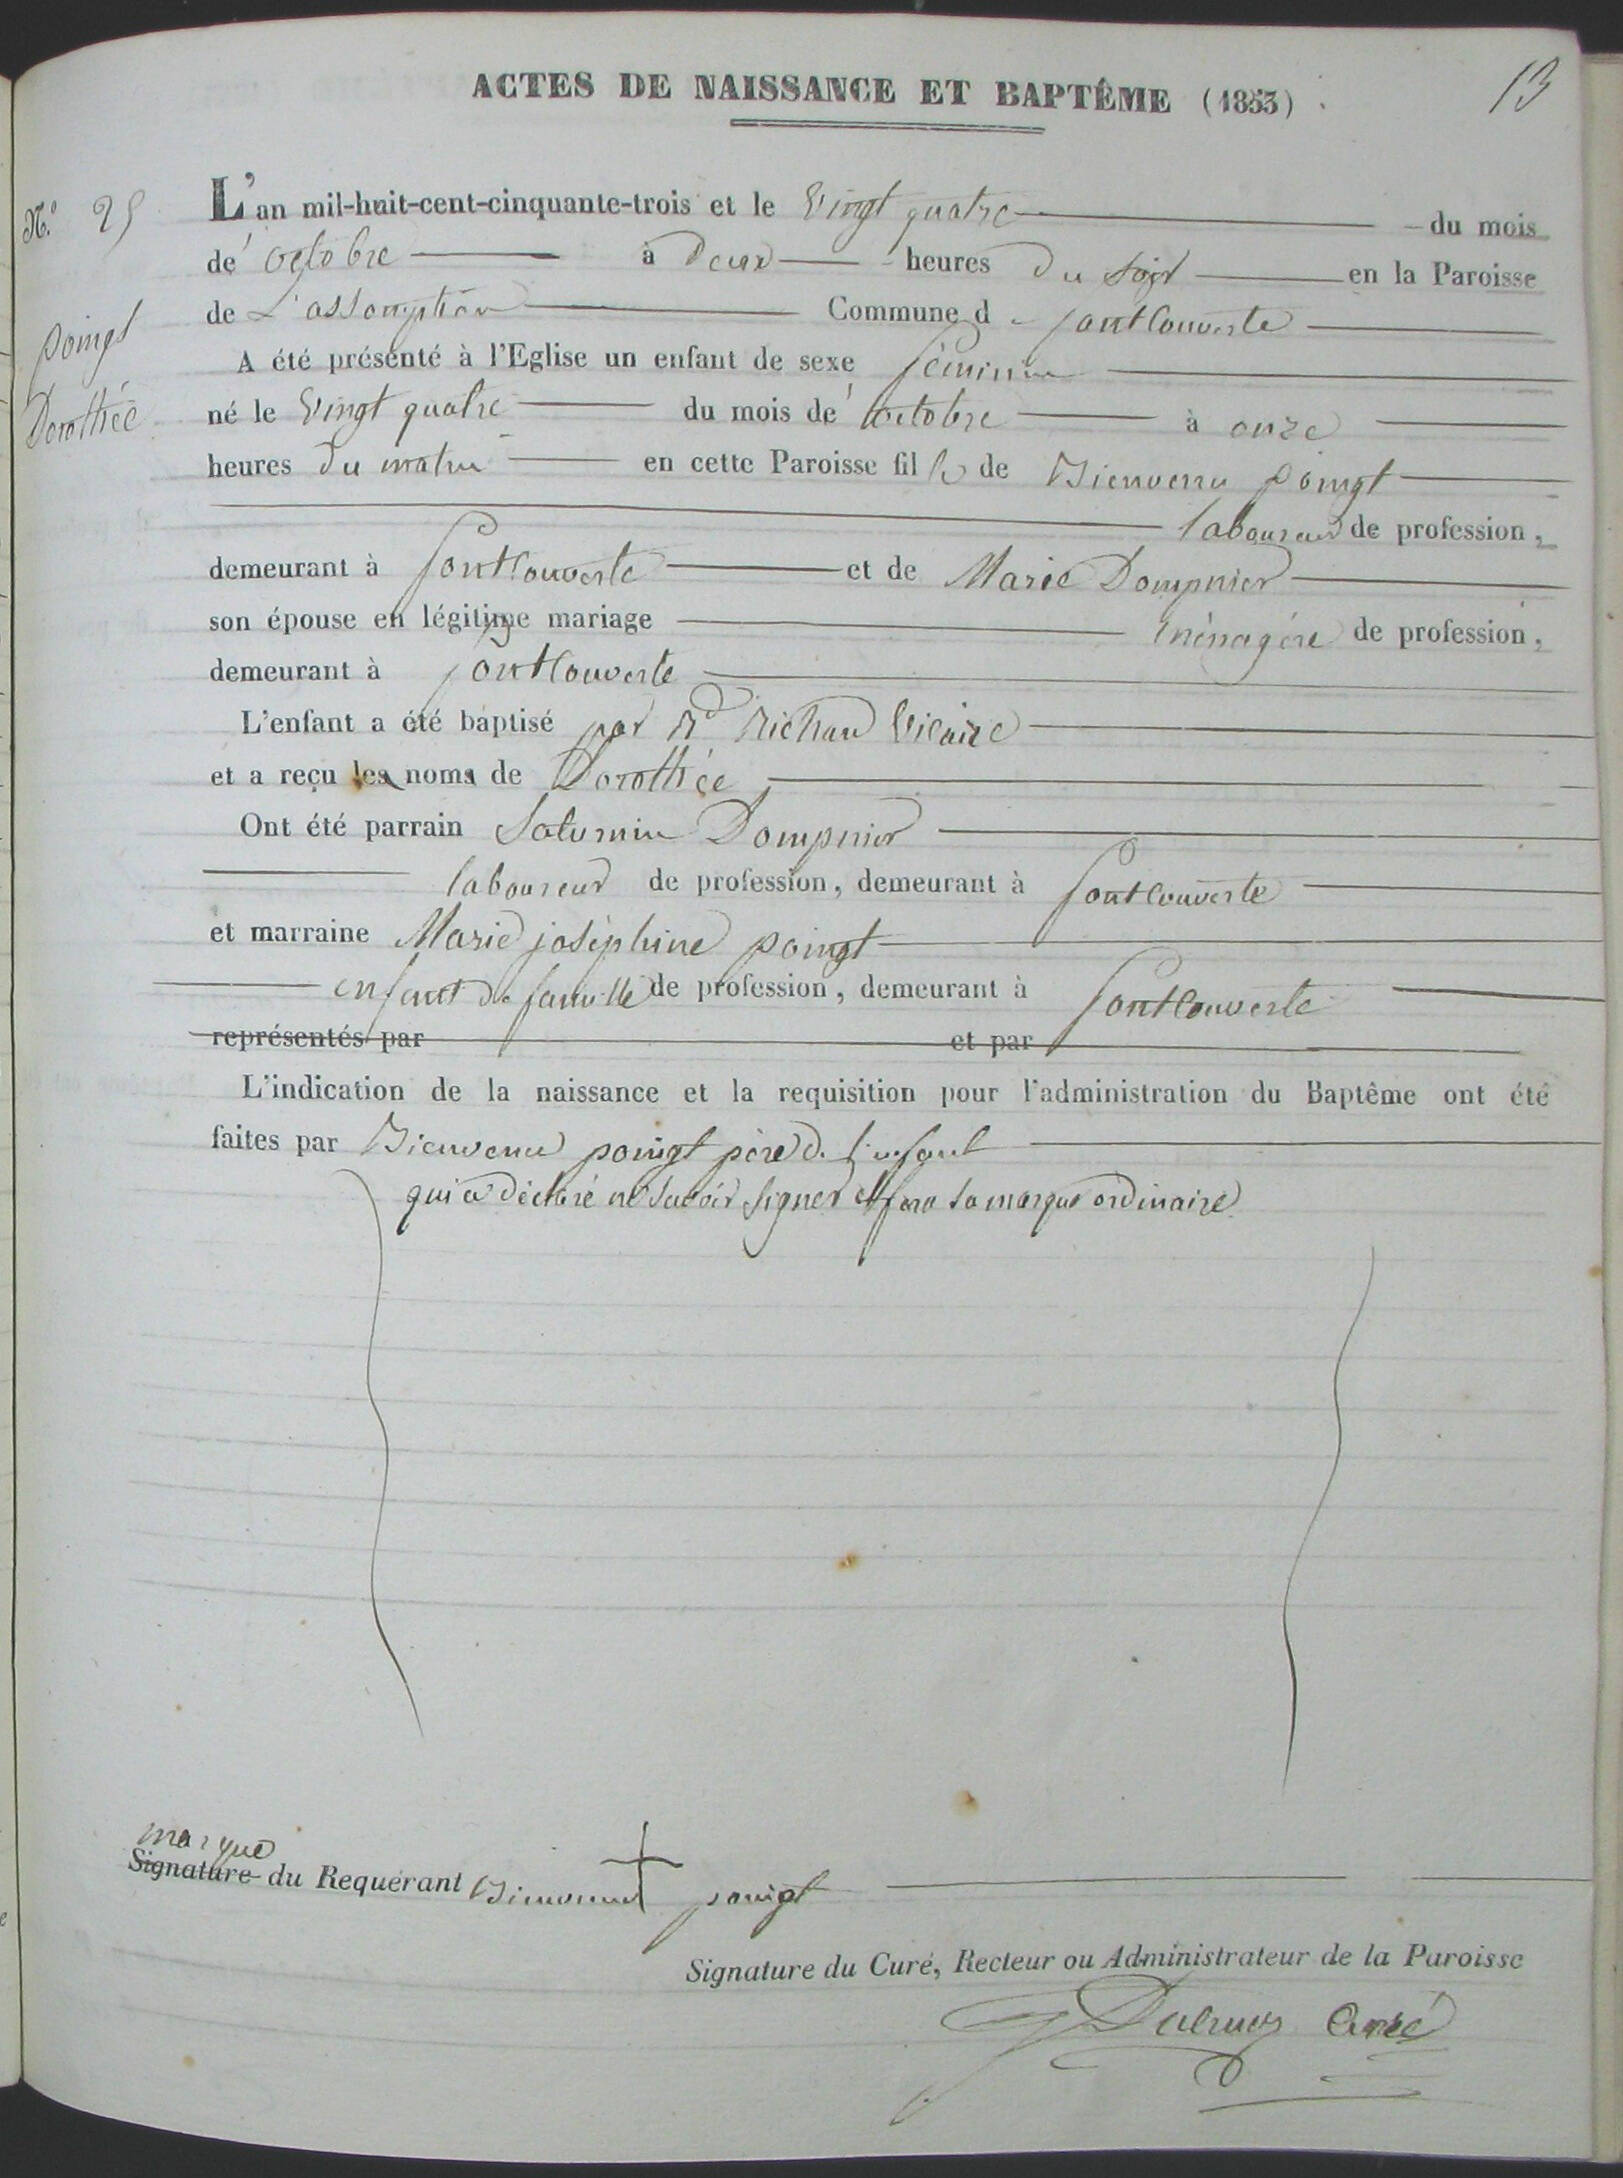 ACTES DE NAISSANCE ET BAPTÊME (1853)
13
N.º 25
L'an mil-huit-cent-cinquante-trois et le Vingt quatre du mois
de octobre à Deux heures Du Soir en la Paroisse
de L'assomption Commune d fontcouverte
poingt
Dorothée
A été présenté à l'Eglise un enfant de sexe féminin
né le Vingt quatre du mois de octobre à onze
heures du matin en cette Paroisse fil le de Bienvenu poingt
laboureur de profession,
demeurant à fontcouverte et de Marie Dompnier
son épouse en légitime mariage ménagére de profession,
demeurant à fontcouverte
L'enfant a été baptisé par Rd Vicaire
et a reçu les noms de Dorothée
Ont été parrain Saturnin Dompnier
laboureur de profession, demeurant à fontcouverte
et marraine Marie joséphine poingt
enfant de famille de profession, demeurant à fontcouverte
représentés par et par
L'indication de la naissance et la requisition pour l'administration du Baptême ont été
faites par Bienvenu poingt père de l'enfant
qui a déclaré ne savoir signer et fera sa marque ordinaire
marque
Signature du Requérant Bienvenu + poingt
Signature du Curé, Recteur ou Administrateur de la Paroisse
Curé